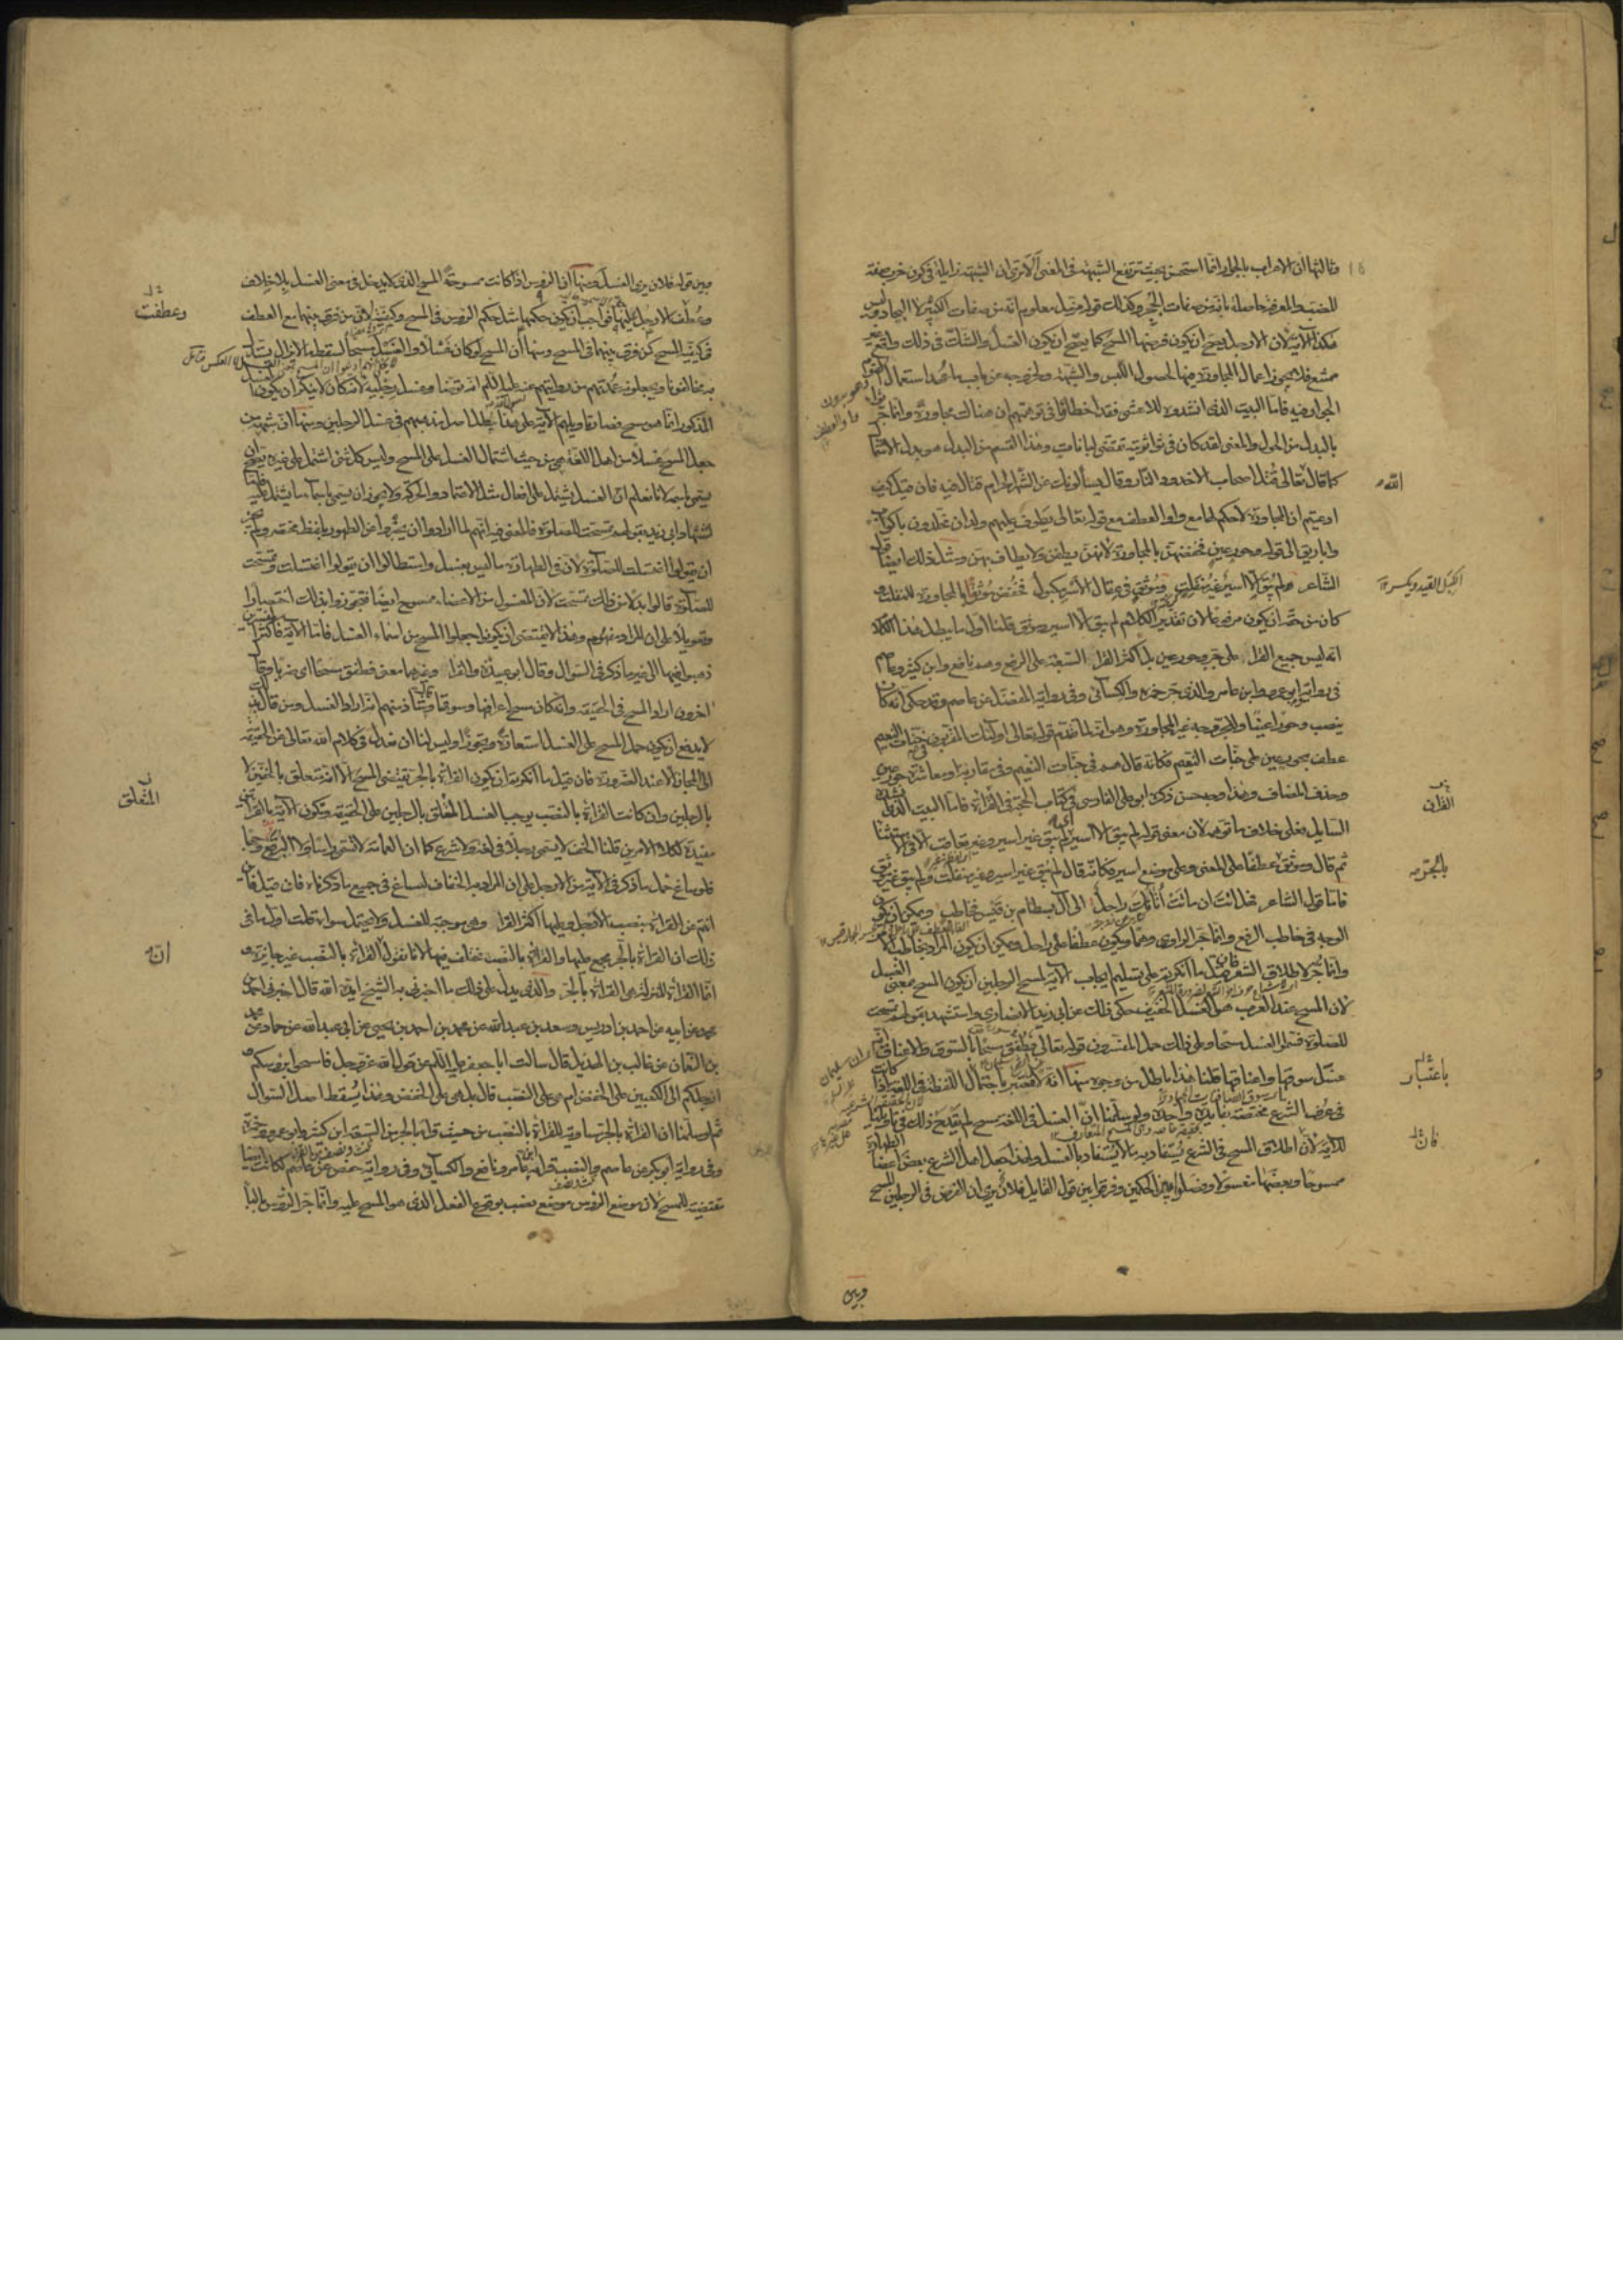 وثالثها ان الاعراب بالجوار انما استحسن بحيث ترتفع الشبهة في المعنى الا ترى ان الشبهة زايلة في كون خرب صفة
للضب والمعرفة حاصلة بانه من صفات الجحر وكذلك قوله مزمل معلوم انه من صفات الكبير لا البجاد وليس
هكذا الآية لان الارجل يصح ان يكون فرضها المسح كما يصح ان يكون الغسل والشك في ذلك واقع غير
ممتنع فلا يجوز اعمال المجاورة فيها لحصول اللبس والشبهة ولخروجه عن باب ما عهد استعمال القوم
الجوار فيه فاما البيت الذي انشدوه للاعشى فقد اخطأوا في توهمهم ان هناك مجاورة وانما جر
بالبدل من الحول والمعنى لقد كان في ثواء ثويته تقضى لبانات وهذا القسم من البدل هو بدل الاشتمال
كما قال تعالى قتل اصحاب الاخدود النار وقال يسألونك عن الشهر الحرام قتال فيه فان قيل كيف
ادعيتم ان المجاورة لا حكم لها مع واو العطف مع قوله تعالى يطوف عليهم ولدان مخلدون باكواب
واباريق الى قوله وحور عين فخفضهن بالمجاورة لانهن يطفن ولا يطاف بهن ومثل ذلك ايضا قول
الشاعر لم يبق الا اسير غير منفلت وموثق في عقال الاسر مكبول فخفض موثقا بالمجاورة للمنفلت و
كان من حقه ان يكون مرفوعا لان تقدير الكلام لم يبق الا اسير وموثق قلنا اول ما يبطل هذا الكلام
انه ليس جميع القراء على جر وحور عين بل اكثر القراء السبعة على الرفع وهم نافع وابن كثير وعاصم
في رواية ابو عمرو وابن عامر والذي جر حمزة والكسائي وفي رواية المفضل عن عاصم وقد حكي انه كان
ينصب وحورا عينا وللجر وجه غير المجاورة وهو انه لما تقدم قوله تعالى اولئك المقربون في جنات النعيم
عطف بحور عين على جنات النعيم فكانه قال هم في جنات النعيم وفي مقاربة او معاشرة حور عين
وحذف المضاف وهذا وجه حسن ذكره ابو علي الفارسي في كتاب الحجة في القراءة فاما البيت الذي انشده
السايل فعلى خلاف ما توهمه لان معنى قوله لم يبق الا اسير لم يبق غير اسير وغير تعاقب الا في الاستثناء
ثم قال وموثق عطفا على المعنى وعلى موضع اسير فكانه قال لم يبق غير اسير غير منفلت ولم يبق غير موثق
فاما قول الشاعر فهل انت ان ماتت اتانك راحل الى آل بسطام بن قيس فخاطب ويمكن ان يكون
الوجه في خاطب الرفع وانما جر الراوي وهما ويكون عطفا على راحل ويمكن ان يكون المراد فخاطبه
وانما جر لاطلاق الشعر فان قيل ما انكرتم على تسليم ايجاب الآية لمسح الرجلين ان يكون المسح بمعنى الغسل
لان المسح عند العرب هو الغسل الخفيف حكى ذلك عن ابي زيد الانصاري واستشهد بقولهم تمسحت
للصلوة فسموا الغسل مسحا وعلى ذلك حمل المفسرون قوله تعالى فطفق مسحا بالسوق والاعناق انه
غسل سوقها واعناقها قلنا هذا باطل من وجوه منها انه لا معتبر باحتمال اللفظة في اللغة اذا كانت
في عرف الشرع مختصة بفايدة واحدة ولو سلمنا ان الغسل في اللغة مسح لم يقدح ذلك في تاويلنا
للآية لان اطلاق المسح في الشرع يستفاد به ما لا يستفاد بالغسل ولهذا جعل اهل الشرع بعض اعضاء الطهارة
ممسوحا وبعضها مغسولا وفصلوا بين الحكمين وفرقوا بين قول القايل فلان يرى ان الفرض في الرجلين المسح
الله
الكبل القيد ويكسر
القراني
بالجر
باعتبار
فان
وبين
وبين قوله فلان يرى الغسل ومنها ان الرؤس اذا كانت ممسوحة المسح الذي لا يدخل في معنى الغسل بلا خلاف
وعطف الارجل عليها فواجب ان يكون حكمها مثل حكم الرؤس في المسح وكيفيته لان من فرق بينهما مع العطف
في كيفية المسح كمن فرق بينهما في المسح ومنها ان المسح لو كان غسلا والغسل مسحا لسقط ما لا يزال يستدل
به مخالفونا ويجعلونه عمدتهم من روايتهم عنه عليه السلم انه توضأ وغسل رجليه لانه كان لا ينكر ان يكون الغسل
المذكور انما هو مسح فصار تاويلهم الآية على هذا يبطل اصل مذهبهم في غسل الرجلين ومنها ان شبهة من
جعل المسح غسلا من اهل اللغة هي من حيث اشتمال الغسل على المسح وليس كل شيء اشتمل على غيره يصح ان
يسمى باسمه لانا نعلم ان الغسل يشتمل على افعال مثل الاعتماد والحركة ولا يجوز ان يسمى باسماء ما يشتمل عليه فاما
استشهاد ابي زيد بقولهم تمسحت للصلوة فالمعنى فيه انهم لما ارادوا ان يخبروا عن الطهور بلفظ مختصر ولم يجز
ان يقولوا اغتسلت للصلوة لان في الطهارة ما ليس بغسل واستطالوا ان يقولوا اغتسلت وتمسحت
للصلوة قالوا بدلا من ذلك تمسحت لان المغسول من الاعضاء ممسوح ايضا فتجوزوا بذلك اختصارا
وتعويلا على ان المراد مفهوم وهذا لا يقتضي ان يكونوا جعلوا المسح من اسماء الغسل فاما الآية فاكثر المفسرين
ذهبوا فيها الى غير ما ذكر في السؤال وقال ابو عبيدة والفراء وغيرهما معنى فطفق مسحا اى ضربا وقال
اخرون اراد المسح في الحقيقة وانه كان مسح اعرافها وسوقها وقال شاذ منهم انه اراد الغسل ومن قال بذلك
لا يدفع ان يكون حمل المسح على الغسل استعارة وتجوزا وليس لنا ان نعدل في كلام الله تعالى عن الحقيقة
الى المجاز الا عند الضرورة فان قيل ما انكرتم ان يكون القراءة بالجر تقتضي المسح الا انه متعلق بالخفين لا
بالرجلين وان كانت القراءة بالنصب يوجب الغسل المتعلق بالرجلين على الحقيقة وتكون الآية بالقراءتين
مفيدة لكلا الامرين قلنا الخف لا يسمى رجلا في لغة ولا شرع كما ان العمامة لا تسمى راسا ولا البرقع وجها
فلو ساغ حمل ما ذكر في الآية من الارجل على ان المراد به الخفاف لساغ في جميع ما ذكرناه فان قيل فاين
انتم عن القراءة بنصب الارجل وعليها اكثر القراء وهي موجبة للغسل ولا يحتمل سواه قلت اول ما في
ذلك ان القراءة بالجر مجمع عليها والقراءة بالنصب مختلف فيها لانا نقول القراءة بالنصب غير جايزة و
انما القراءة المنزلة هي القراءة بالجر والذي يدل على ذلك ما اخبرني به الشيخ ايده الله قال اخبرني احمد بن
محمد عن ابيه عن احمد بن ادريس وسعد بن عبدالله عن محمد بن احمد بن يحيى عن ابي عبدالله عن حماد عن محمد
بن النعمان عن غالب بن الهذيل قال سالت ابا جعفر عليه السلم عن قول الله عز وجل فامسحوا برؤسكم و
ارجلكم الى الكعبين على الخفض ام هي على النصب قال بل هي على الخفض وهذا يسقط اصل السؤال
ثم لو سلمنا ان القراءة بالجر مساوية للقراءة بالنصب من حيث قرا بالجر من السبعة ابن كثير وابو عمرو وحمزة
وفي رواية ابو بكر عن عاصم والنصب قراءة ابن عامر ونافع والكسائي وفي رواية حفص عن عاصم لكانت ايضا
مقتضية للمسح لان موضع الرؤس موضع نصب بوقوع الفعل الذي هو المسح عليه وانما جر الرؤس بالباء
وعطفت
المتعلق
ان